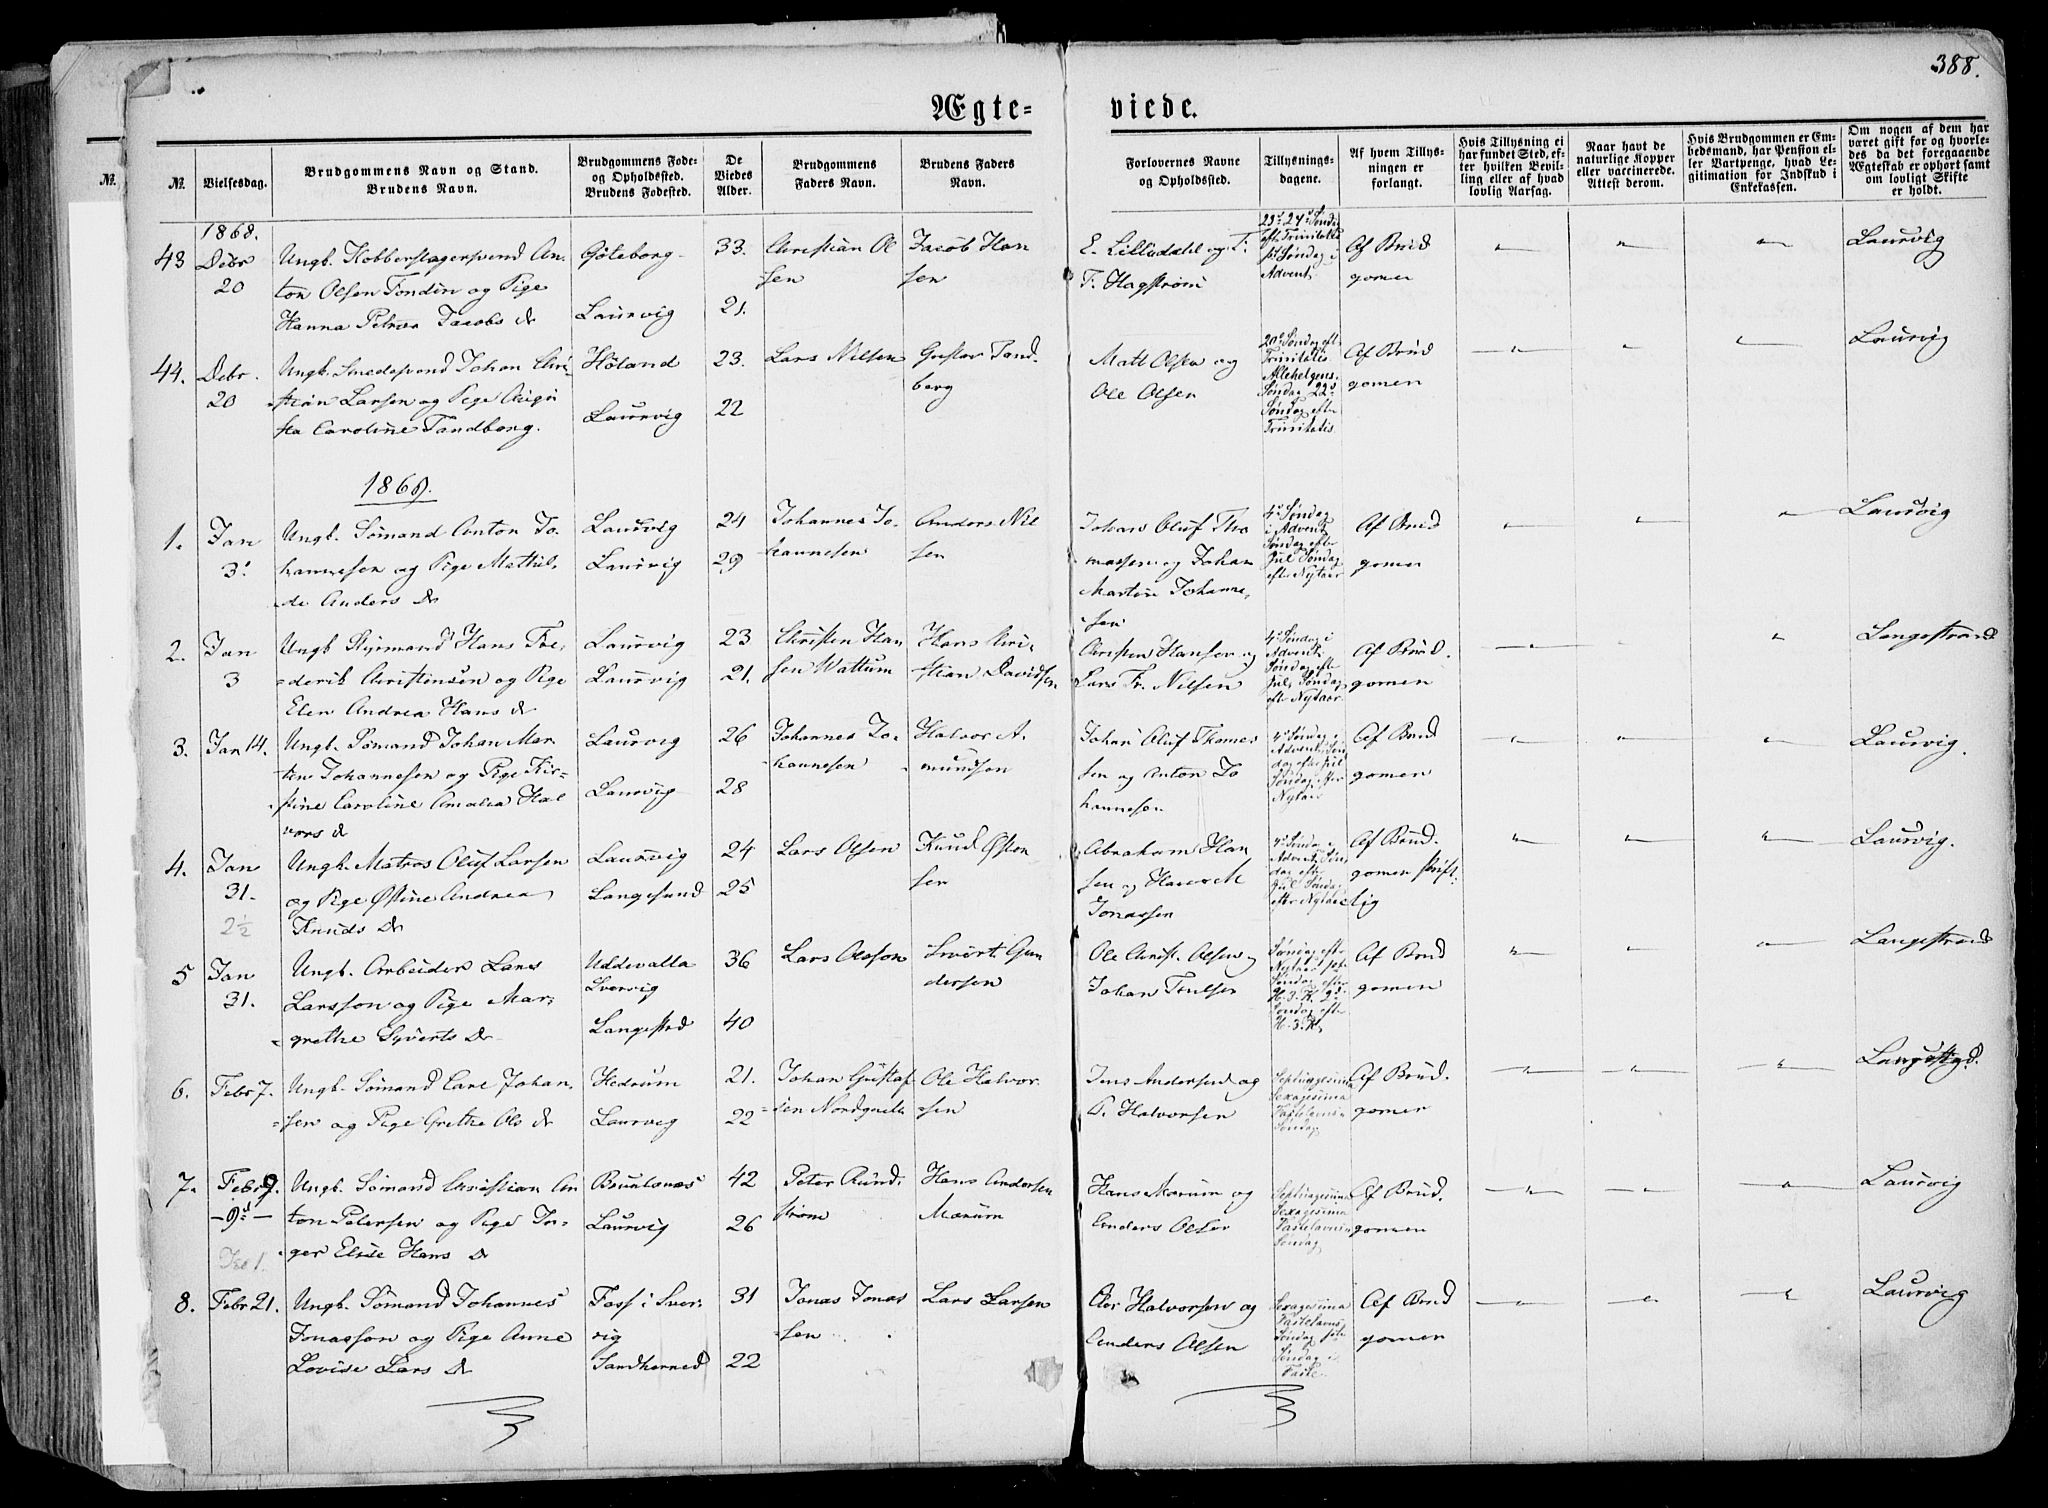 388.
Ægte-
viede.
№.
№.
Vielsesdag.
Brudgommens Navn og Stand.
Brudens Navn.
Brudgommens Føde-
og Opholdssted.
Brudens Fødested.
De
Viedes
Alder.
Brudgommens
Faders Navn.
Brudens Faders
Navn.
Forlovernes Navne
og Opholdssted.
Tillysnings-
dagene.
Af hvem Tillys-
ningen er
forlangt.
Hvis Tillysning ei
har fundet Sted, ef-
ter hvilken Bevil-
ling eller af hvad
lovlig Aarsag.
Naar havt de
naturlige Kopper
eller vaccinerede.
Attest derom.
Hvis Brudgommen er Em-
bedsmand, har Pension el-
ler Vartpenge, hvad Le-
gitimation for Indskud i
Enkekassen.
Om nogen af dem har
været gift før og hvorle-
des da det foregaaende
Ægteskab er ophørt samt
om lovligt Skifte
er holdt.
1868.
43
Debr
20
Ungb. Kobberslagersvend An-
ton Olsen Tondin og Pige
Hanna Petrea Jacobs dr
Göteborg
Laurvig
33.
21.
Christian Ol
sen
Jacob Han
sen
E. Lilledahl og F.
F. Hagstrøm
23d 24d Søndag
efter Trinitatis
1st Søndag i
Advent
Af Brud
gomen
Laurvig
44.
Debr
20
Ungb. Smedesvend Johan Chri-
stian Larsen og Pige Augu
sta Caroline Tandberg.
Høland
Laurvig
23.
22
Lars Nilsen
Gustav Tand-
berg
Matt Olsen og
Ole Olsen
20d Søndag eft
Trinitatis
Allehelgens
Søndag 22d
Søndag efter
Trinitatis
Af Brud
gomen
Laurvig
1869.
1.
Jan
3.
Ungb. Sømand Anton Jo-
hannesen og Pige Mathil-
de Anders dr
Laurvig
Laurvig
24
29
Johannes Jo-
hannesen
Anders Nil
sen
Johan Oluf Tho
massen og Johan
Martin Johanne-
sen
4d Søndag
i Advent
Søndag efter
Jul Søndag
efter Nytaar
Af Brud
gomen
Laurvig
2.
Jan
3
Ungb Styrmand Hans Fre-
derik Christensen og Pige
Elen Andrea Hans dr
Laurvig
Laurvig
23
21.
Christen Han
sen Wattum
Hans Chri-
stian Davidsen
Christen Hansen og
Lars Fr. Nilsen
4d Søndag i
Advent
Søndag efter
Jul, Søndag
efter Nytaar
Af Brud.
gomen
Langestrand
3.
Jan 14.
Ungb. Sømand Johan Mar
tin Johannesen og Pige Kir-
stine Caroline Amalia Hal
vors dr
Laurvig
Laurvig
26
28
Johannes Jo-
hannesen
Halvor A-
mundsen
Johan Oluf Thomes
sen og Anton Jo
hannesen
4d Søndag i
Advent Søn
dag efter Jul
Søndag efter
Nytaar
Af Brud
gomen
Laurvig.
4.
Jan
31.
2½
Ungb. Matros Oluf Larsen
og Pige Østine Andrea
Knuds dr
Laurvig
Langesund
24
25
Lars Olsen
Knud Østen
sen
Abraham Han
sen og
Jonassen
4d Søndag i
Advent Søn
dag efter
Jul Søndag
efter Nytaar
Af Brud.
gomen skrift-
lig
Laurvig.
5
Jan
31.
Ungb. Arbeider Lars
Larsson og Pige Mar-
grethe Syverts dr
Uddevalla
Sverrig
Langestrd
36
40
Lars Olsson
Sivert Gun
dersen
Ole Christ. Olsen og
Johan Trulsen
Søndag efter
Nytaar 1ste
Søndag efter
H. 3. K. 2d
Søndag efter
H. 3. K.
Af Brud
gomen
Langestrand
6.
Febr 7.
Ungb. Sømand Carl Johan-
sen og Pige Grethe Ols dr
Hedrum
Laurvig
21.
22
Johan Gustaf
sen Nordquela
Ole Halvor
sen
Jens Andersen og
P. Halvorsen
Septuagesima
Sexagesima
Fastelavns
Søndag
Af Brud.
gomen
Langestrd.
7.
Febr 7.
-9d-
Ungb. Sømand Christian An
ton Petersen og Pige In-
ger Elise Hans dr
Brunlanæs
Laurvig
42
26
Peter Rund-
strøm
Hans Andersen
Marum
Hans Marum og
Anders Olsen
Septuagesima
Sexagesima
Fastelavns
Søndag
Af Brud.
gomen
Laurvig
8.
Febr 21.
Ungb. Sømand Johannes
Jonasson og Pige Anne
Lovise Lars dr
Foss i Sver-
rig
Sandherred
31
22
Jonas Jonas
sen
Lars Larsen
Ole Halvorsen og
Anders Olsen
Sexagesima
Fastelavns
Søndag 1ste
Søndag i
Faste
Af Brud
gomen
Laurvig